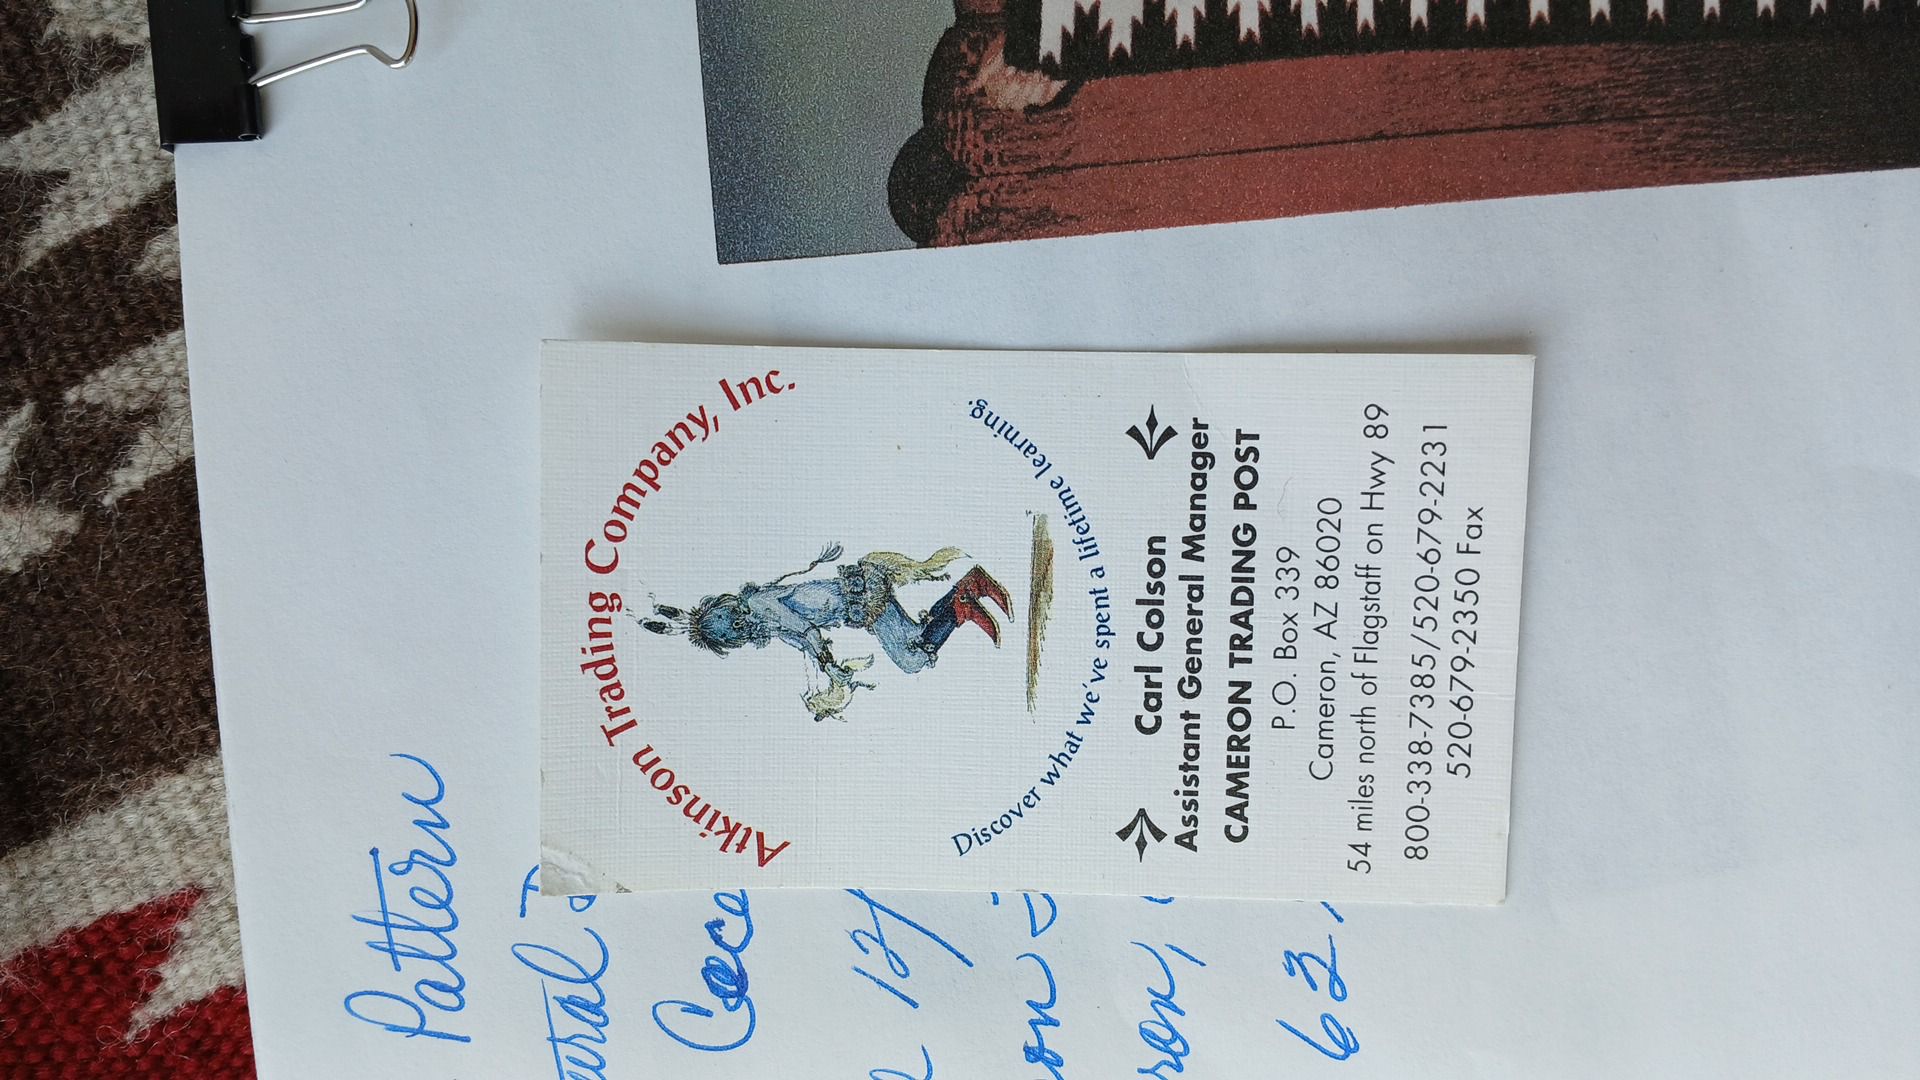 Atkinson Trading Company, Inc.
Discover what we've spent a lifetime learning.
Carl Colson
Assistant General Manager
CAMERON TRADING POST
P.O. Box 339
Cameron, AZ 86020
54 miles north of Flagstaff on Hwy 89
800-338-7385/520-679-2231
520-679-2350 Fax
Pattern
12/
62,